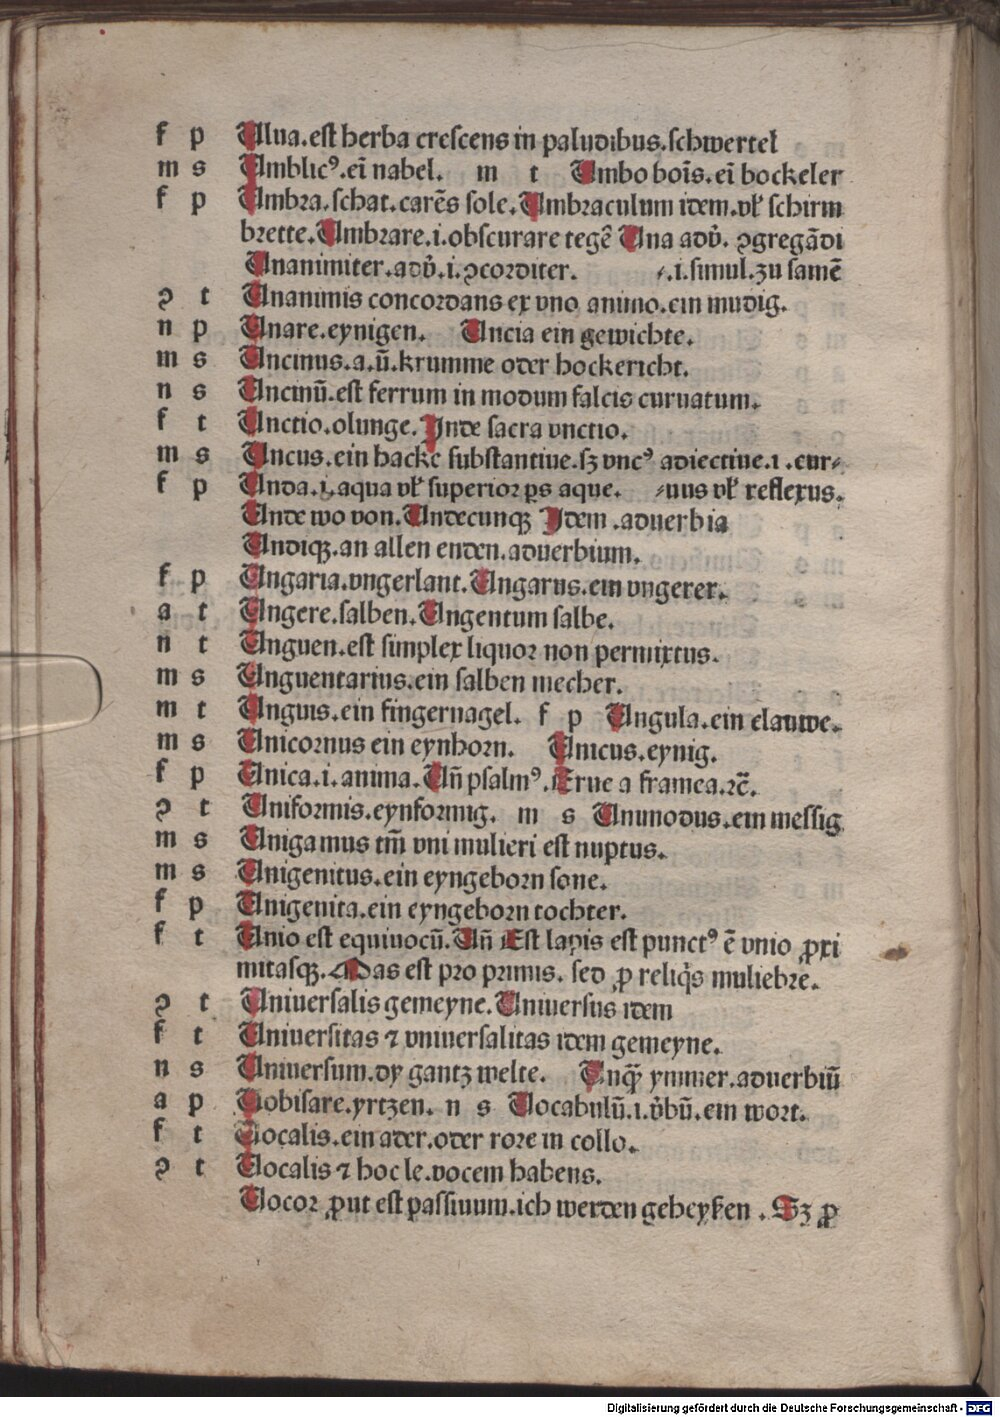 f p Ulua.est herba crescens in paludibus.schwertel
m s Umblicꝰ.eī nabel. m t Umbo boīs.eī bockeler
f p Umbra.schat.carēs sole.Umbraculum idem.vel schirm
brette.Umbrare.i.obscurare tegē Una adū. ꝯgregādi
Unanimiter.adū.i.ꝯcorditer. ⸗.i.simul.zu samē
ꝯ t Unanimis concordans ex vno animo.ein mudig.
n p Unare.eynigen. Uncia ein gewichte.
m s Uncinus.a.ū.krumme oder hockericht.
n s Uncinū.est ferrum in modum falcis curuatum.
f t Unctio.olunge.Inde sacra vnctio.
m s Uncus.ein hacke substantiue.sꝫ vncꝰ adiectiue.i.cur⸗
f p Unda.i.aqua vel superior ps aque. ⸗uus vel reflexus.
Unde wo von.Undecunqꝫ Idem.aduerbia
Undiqꝫ.an allen enden.aduerbium.
f p Ungaria.vngerlant.Ungarus.ein vngerer.
a t Ungere.salben.Ungentum salbe.
n t Unguen.est simplex liquor non permixtus.
m s Unguentarius.ein salben mecher.
m t Unguis.ein fingernagel. f p Ungula.ein clauwe.
m s Unicornus ein eynhorn. Unicus.eynig.
f p Unica.i.anima.Uñ psalmꝰ.Erue a framea.⁊c̄.
ꝯ t Uniformis.eynformig. m s Unimodus.ein messig
m s Unigamus tm̄ vni mulieri est nuptus.
m s Unigenitus.ein eyngeborn sone.
f p Unigenita.ein eyngeborn tochter.
f t Unio est equiuocū.Uñ Est lapis est punctꝰ ē vnio ꝓxi
mitasqꝫ.Mas est pro primis.sed ꝓ reliqis muliebre.
ꝯ t Uniuersalis gemeyne.Uniuersus idem
f t Uniuersitas ⁊ vniuersalitas idem gemeyne.
n s Uniuersum.dy gantz welte. Unqꝫ ymmer.aduerbiū
a p Vobisare.yrtzen. n s Vocabulū.i.v̄bū.ein wort.
f t Vocalis.ein ader.oder rore in collo.
ꝯ t Vocalis ⁊ hoc le.vocem habens.
Vocor ꝓut est passiuum.ich werden geheyßen.Sꝫ ꝓ
Digitalisierung gefördert durch die Deutsche Forschungsgemeinschaft - DFG